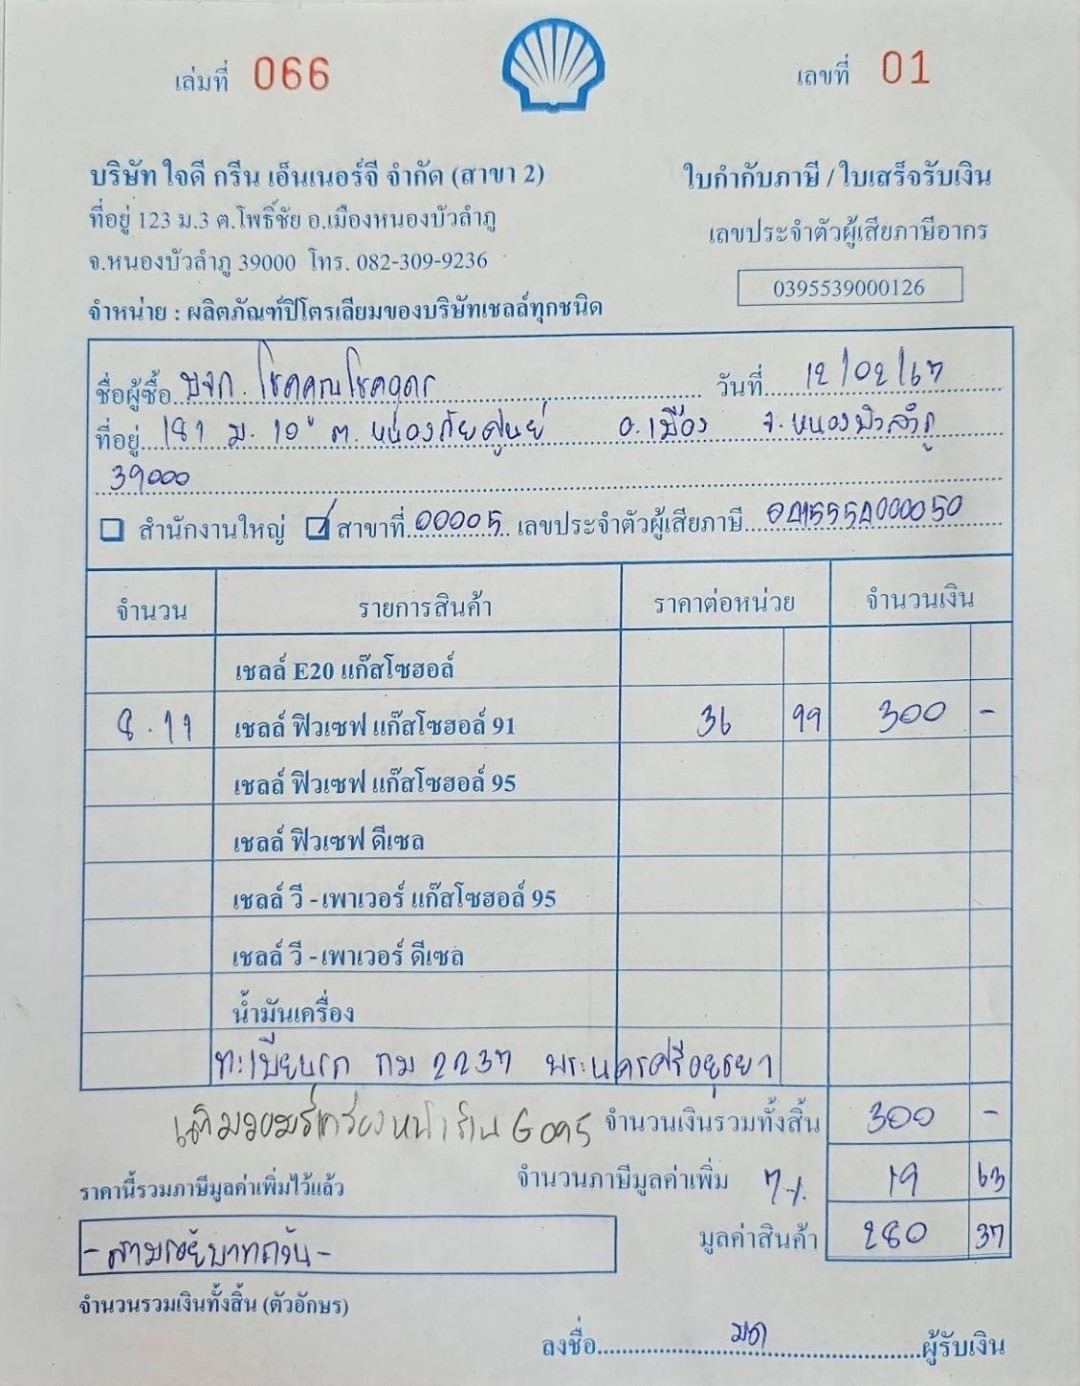 เล่มที่ 066
เลขที่ 01
บริษัท ใจดี กรีน เอ็นเนอร์จี จำกัด (สาขา 2)
ใบกำกับภาษี / ใบเสร็จรับเงิน
ที่อยู่ 123 ม.3 ต.โพธิ์ชัย อ.เมืองหนองบัวลำภู
เลขประจำตัวผู้เสียภาษีอากร
จ.หนองบัวลำภู 39000 โทร. 082-309-9236
0395539000126
จำหน่าย : ผลิตภัณฑ์ปิโตรเลียมของบริษัทเชลล์ทุกชนิด
ชื่อผู้ซื้อ บจก. โชคคณโชคอุดร วันที่ 12/02/67
ที่อยู่ 181 ม. 10 ต. หนองภัยศูนย์ อ.เมือง จ.หนองบัวลำภู
39000
สำนักงานใหญ่ สาขาที่ 00005 เลขประจำตัวผู้เสียภาษี 0415554000050
จำนวน รายการสินค้า ราคาต่อหน่วย จำนวนเงิน
เชลล์ E20 แก๊สโซฮอล์
8.11 เชลล์ ฟิวเซฟ แก๊สโซฮอล์ 91 36 99 300 -
เชลล์ ฟิวเซฟ แก๊สโซฮอล์ 95
เชลล์ ฟิวเซฟ ดีเซล
เชลล์ วี - เพาเวอร์ แก๊สโซฮอล์ 95
เชลล์ วี - เพาเวอร์ ดีเซล
น้ำมันเครื่อง
ทะเบียนรถ กม 2237 พระนครศรีอยุธยา
G095 จำนวนเงินรวมทั้งสิ้น 300 -
จำนวนภาษีมูลค่าเพิ่ม 7% 19 63
ราคานี้รวมภาษีมูลค่าเพิ่มไว้แล้ว
มูลค่าสินค้า 280 37
-สามร้อยบาทถ้วน-
จำนวนรวมเงินทั้งสิ้น (ตัวอักษร)
ลงชื่อ ผู้รับเงิน